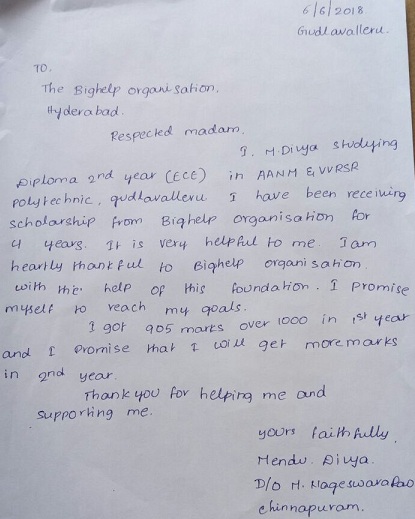 6/6/2018
Gudlavalleru.
TO.
The Bighelp organisation,
Hyderabad.
Respected madam,
I, M. Divya studying
Diploma 2nd year (ECE) in AANM & VVRSR
polytechnic, gudlavalleru I have been receiving
scholarship from Bighelp organisation for
4 years. It is very helpful to me. I am
heartly thankful to Bighelp organisation.
with the help of this foundation. I promise
myself to reach my goals.
I got 905 marks over 1000 in 1st year
and I promise that I will get more marks
in 2nd year.
Thank you for helping me and
supporting me.
yours faithfully,
Mendu. Divya.
D/O M. Nageswara Rao
chinnapuram.